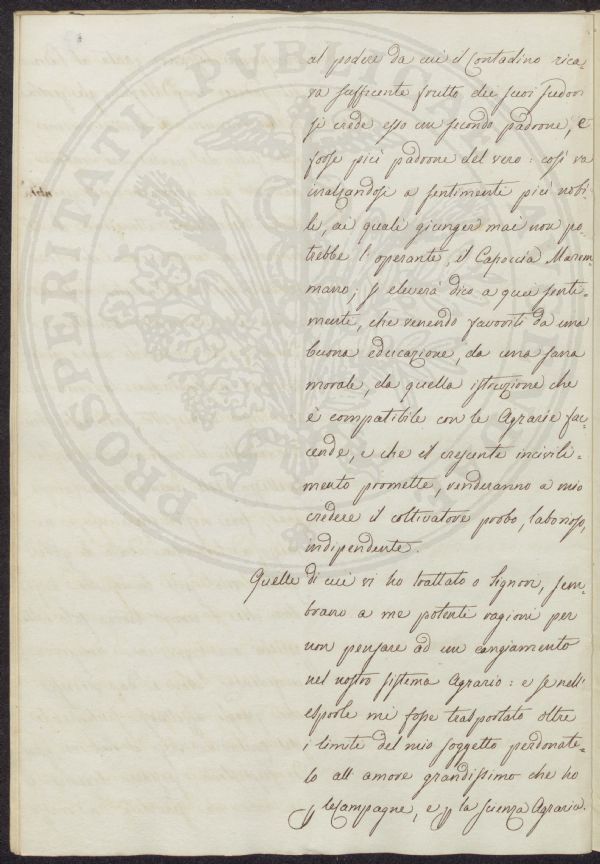 PROSPERITATI PUBLICAE AUGENDAE
al podere da cui il Contadino rica-
va sufficente frutto dei suoi sudori
si crede esso un secondo padrone, e
forse più padrone del vero: così va
inalzandosi a sentimenti più nobi-
li, ai quali giunger mai non po-
trebbe l'operante, il Capoccia Marem-
mano; si eleverà dico a quei senti-
menti, che venendo favoriti da una
buona educazione, da una sana
morale, da quella istruzione che
è compatibile con le Agrarie fac-
cende, e che il crescente incivili-
mento promette, renderanno a mio
credere il coltivatore probo, laborioso,
indipendente.
Quelle di cui vi ho trattato o Signori, sem-
brano a me potenti ragioni per
non pensare ad un cangiamento
nel nostro sistema Agrario: e se nell'
esporle mi fosse trasportato oltre
i limiti del mio soggetto perdonate-
lo all amore grandissimo che ho
p le Campagne, e p la scienza Agraria.